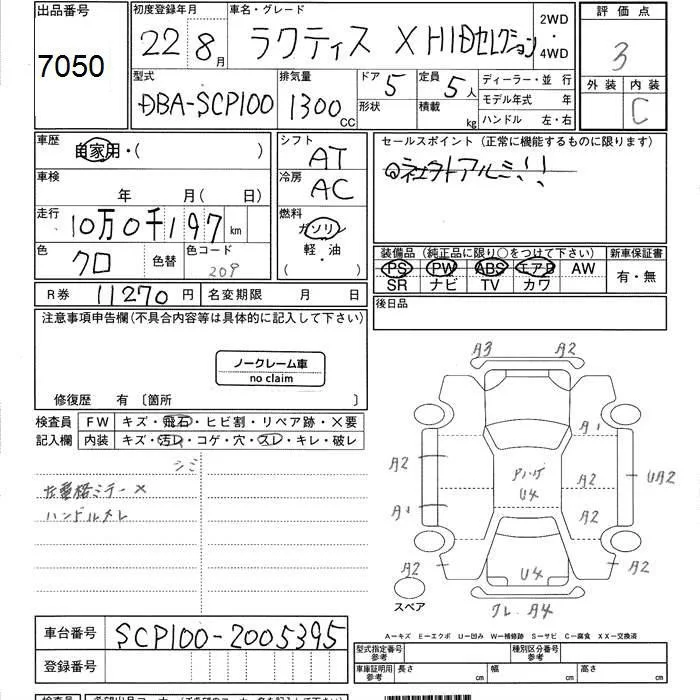 出品番号 初度登録年月 車名・グレード 2WD ・ 4WD 評価点
7050 22 8月 ラクティス X HIDセレクション 3
型式 排気量 ドア 5 定員 5人 ディーラー・並行 外装 内装
DBA-SCP100 1300CC 形状 積載 kg モデル年式 年 C
ハンドル 左・右
車歴 自家用・( ) シフト AT セールスポイント (正常に機能するものに限ります)
車検 年 月(日) 冷房 AC
走行 10万0千197km 燃料 ガソリン 装備品 (純正品に限り○をつけて下さい) 新車保証書
色 クロ 色替 色コード 209 軽・油 PS PW ABS エアB AW 有・無
( ・ ) SR ナビ TV カワ
R券 11270円 名変期限 月 日 後日品
注意事項申告欄(不具合内容等は具体的に記入して下さい)
ノークレーム車
no claim
修復歴 有 〔箇所 〕
検査員 FW キズ・飛石・ヒビ割・リペア跡・×要
記入欄 内装 キズ・汚レ・コゲ・穴・スレ・キレ・破レ
シミ
ハンドルスレ
A3 A2
A1
A2 A2 UA2
A1 U4 A2
A2 U4 A2
スペア A4
A-キズ E-エクボ U-凹み W-補修跡 S-サビ C-腐食 XX-交換済
車台番号 SCP100-2005395
型式指定番号 参考 種別区分番号 参考
登録番号 車庫証明用 参考 長さ cm 幅 cm 高さ cm